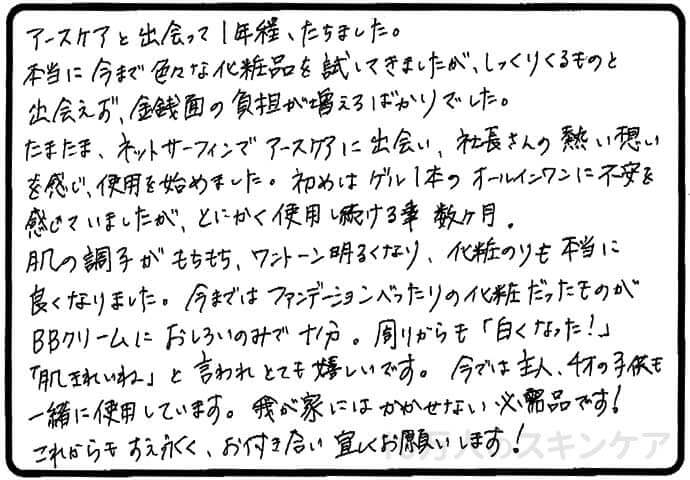 アースケアと出会って1年程、たちました。
本当に今まで色々な化粧品を試してきましたが、しっくりくるものと
出会えず、金銭面の負担が増えるばかりでした。
たまたま、ネットサーフィンでアースケアに出会い、社長さんの熱い想い
を感じ、使用を始めました。初めはゲル1本のオールインワンに不安を
感じていましたが、とにかく使用し続ける事数ヶ月。
肌の調子がもちもち、ワントーン明るくなり、化粧のりも本当に
良くなりました。今まではファンデーションべったりの化粧だったものが
BBクリームにおしろいのみで十分。周りからも「白くなった！」
「肌きれいね」と言われとても嬉しいです。今では主人、4才の子供も
一緒に使用しています。我が家にはかかせない必需品です！
これからもすえ永く、お付き合い宜しくお願いします！
万人のスキンケア